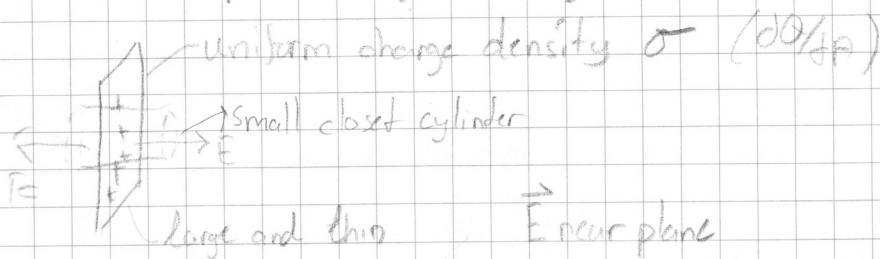 uniform charge density σ (dQ/dA)
small closet cylinder
E
E
large and thin
E⃗ near plane